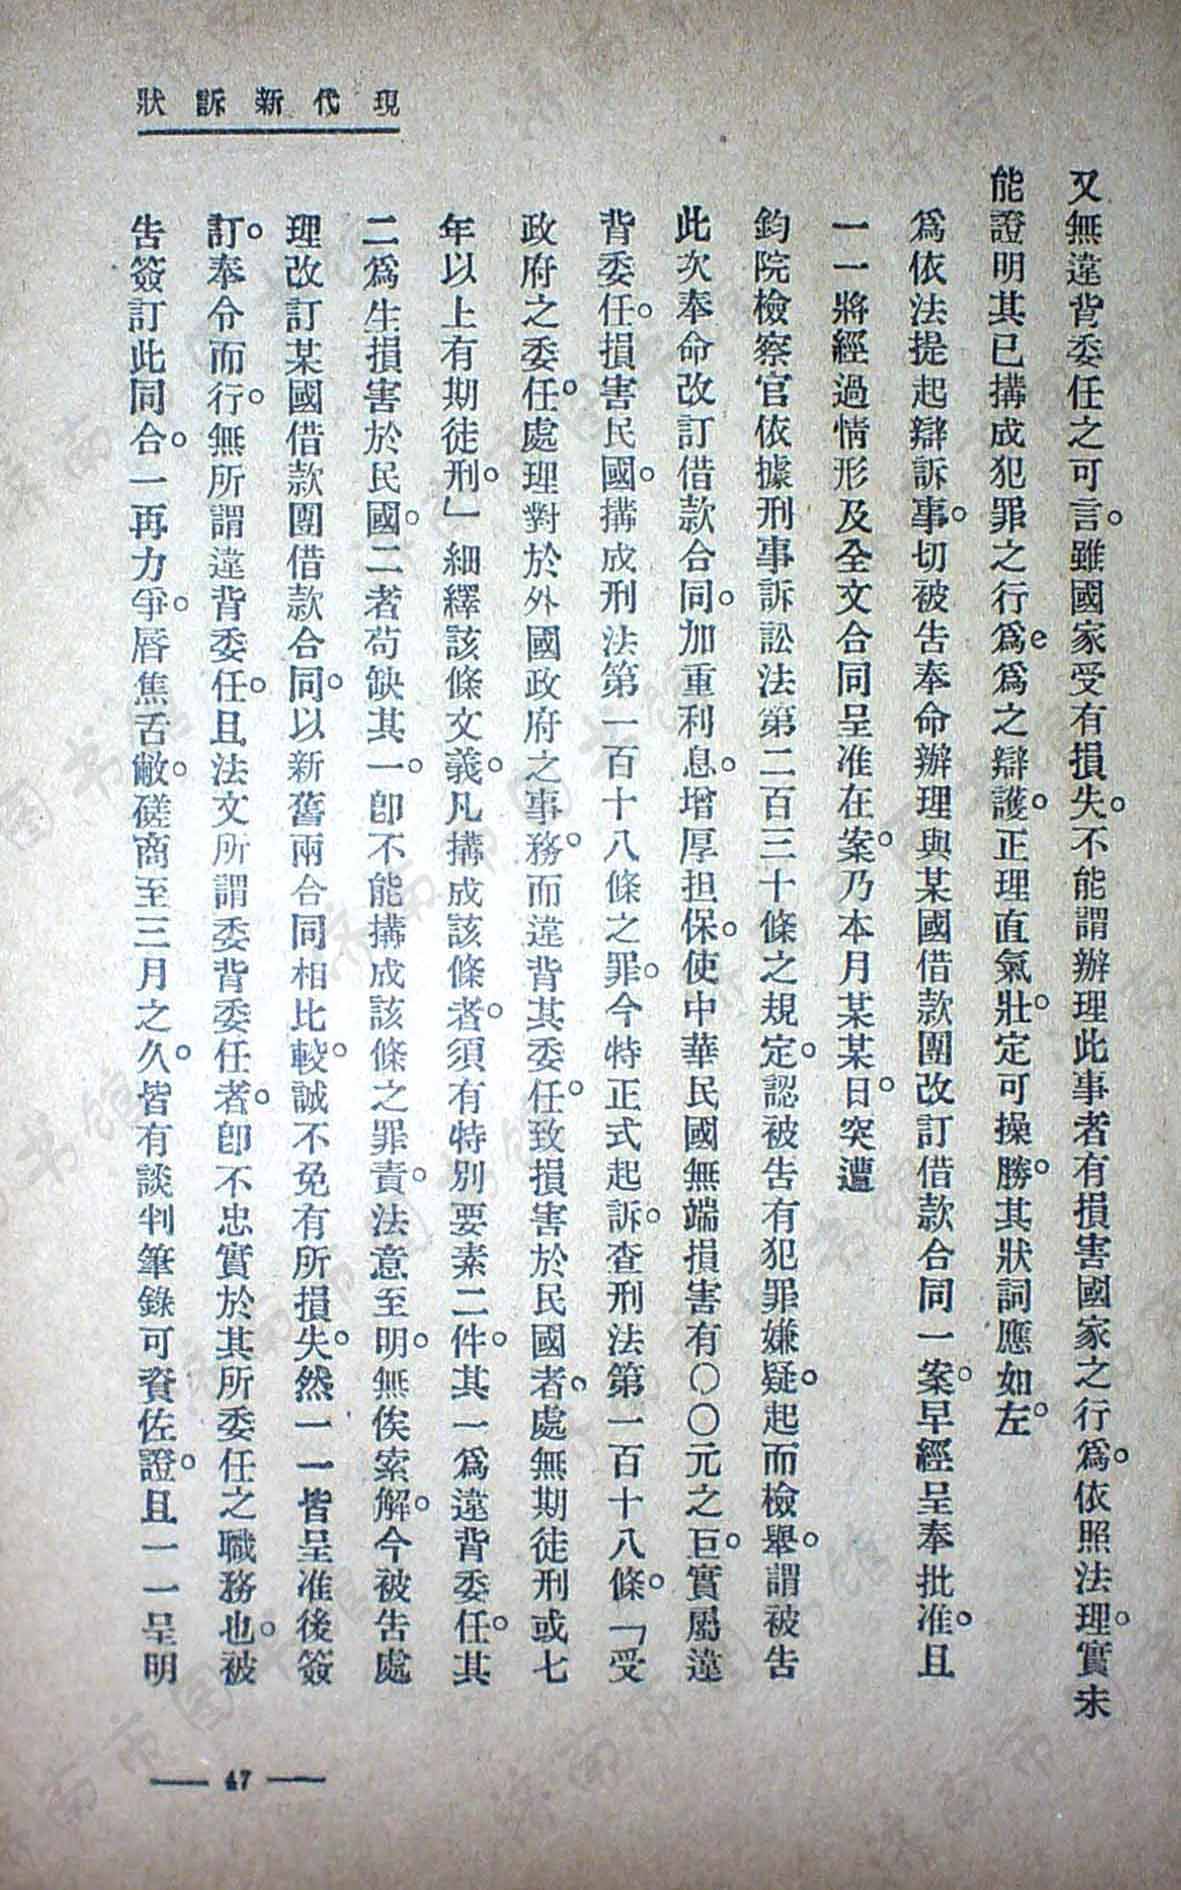 現代新訴狀
又無違背委任之可言。雖國家受有損失。不能謂辦理此事者有損害國家之行爲。依照法理。實未
能證明其已搆成犯罪之行爲e爲之辯護。正理直氣壯。定可操勝。其狀詞應如左。
爲依法提起辯訴事。切被告奉命辦理與某國借款團改訂借款合同一案。早經呈奉批准。且
一一將經過情形及全文合同呈准在案。乃本月某某日。突遭
鈞院檢察官依據刑事訴訟法第二百三十條之規定。認被告有犯罪嫌疑。起而檢舉。謂被告
此次奉命改訂借款合同。加重利息。增厚担保。使中華民國無端損害有〇〇元之巨。實屬違
背委任。損害民國。搆成刑法第一百十八條之罪。今特正式起訴。查刑法第一百十八條。「受
政府之委任。處理對於外國政府之事務。而違背其委任。致損害於民國者。處無期徒刑或七
年以上有期徒刑。」細繹該條文義。凡搆成該條者。須有特別要素二件。其一爲違背委任。其
二爲生損害於民國。二者苟缺其一。卽不能搆成該條之罪責。法意至明。無俟索解。今被告處
理改訂某國借款團借款合同。以新舊兩合同相比較。誠不免有所損失。然一一皆呈准後簽
訂。奉令而行。無所謂違背委任。且法文所謂委背委任者。卽不忠實於其所委任之職務也。被
告簽訂此同合。一再力爭。唇焦舌敝。磋商至三月之久。皆有談判筆錄可資佐證。且一一呈明
— 47 —
济南市图书馆